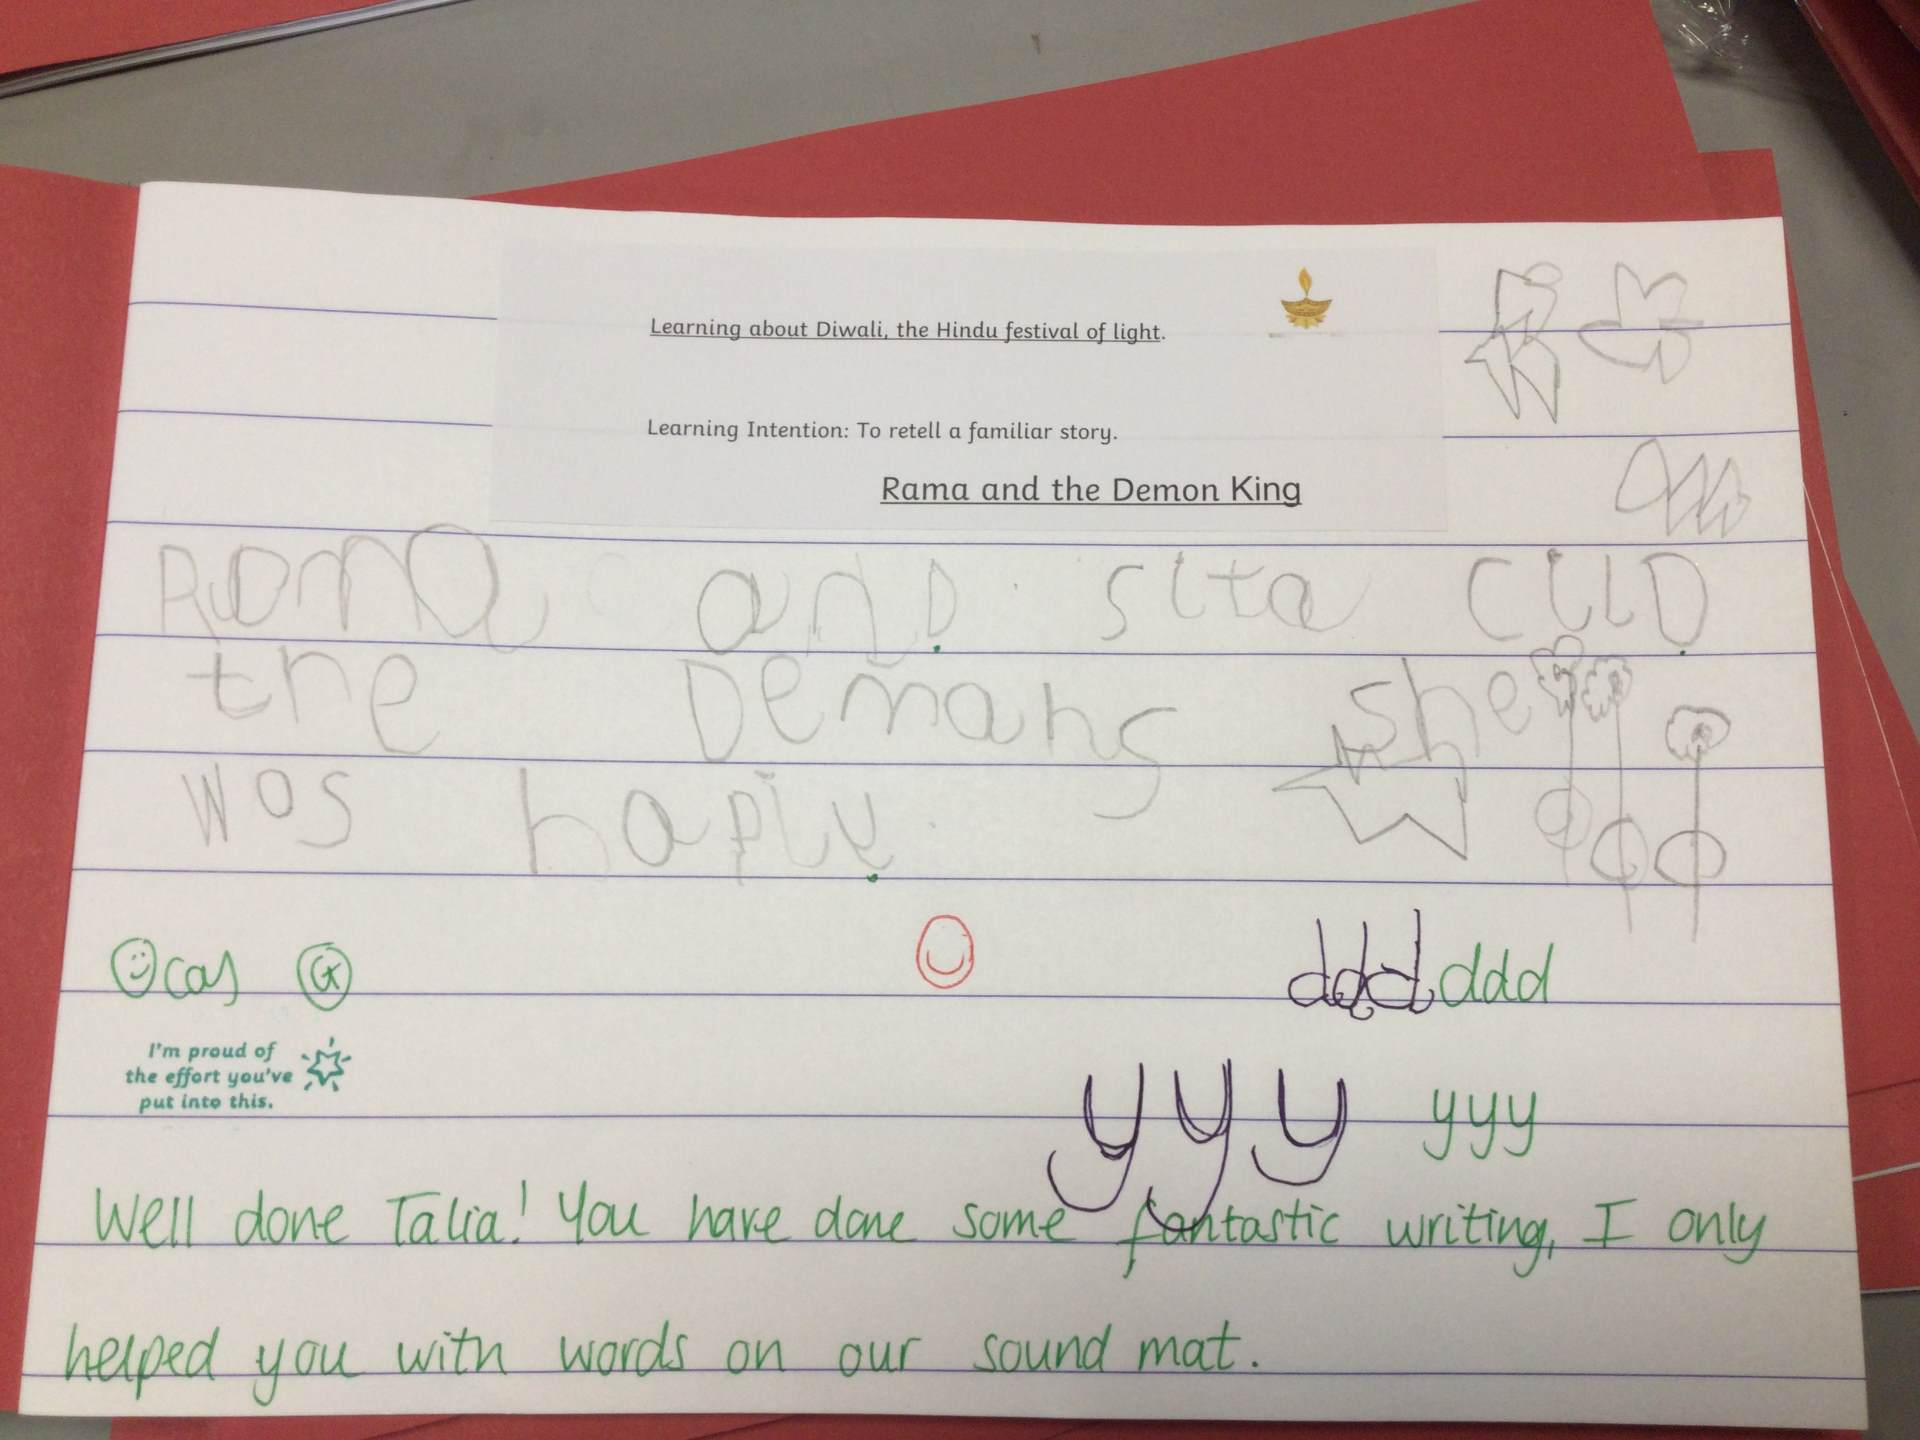 Learning about Diwali, the Hindu festival of light.
Learning Intention: To retell a familiar story.
Rama and the Demon King
Rama and sita cilD
the Demans she
wos hapiy.
cas G
ddd ddd
I'm proud of
the effort you've
put into this.
yyy yyy
Well done Talia! You have done some fantastic writing, I only
helped you with words on our sound mat.